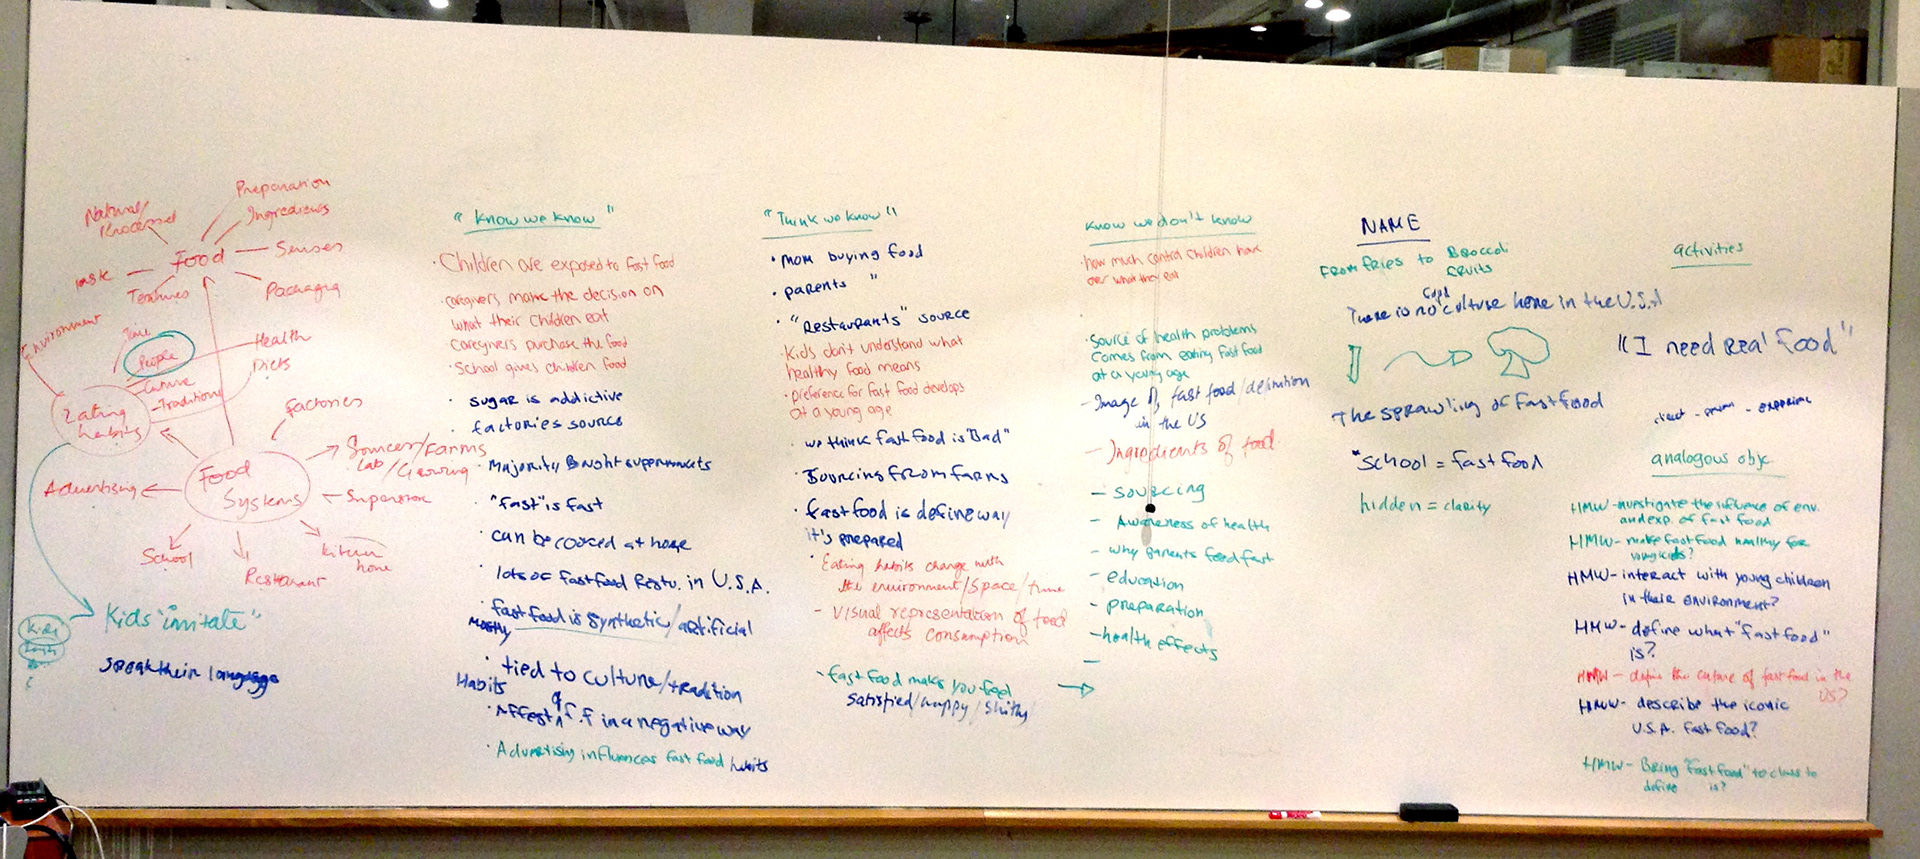 Preparation
Ingredients
Natural/
Processed
Food
Senses
Taste
Textures
Packaging
Environment
Time
People
Culture
Traditions
Health
Diets
Eating
habits
factories
Sources/Farms
Lab/Growing
Food
Systems
Advertising
Superstore
School
Restaurant
kitchen
home
Kids "imitate"
Kids
speak their language
"Know we know"
· Children are exposed to fast food
· caregivers make the decision on
what their children eat
· caregivers purchase the food
· School gives children food
· sugar is addictive
· factories source
· Majority Bought supermarkets
· "fast" is fast
· can be cooked at home
· lots of fastfood Restu. in U.S.A.
· fastfood is synthetic/artificial
mostly
· tied to culture/tradition
Habits
· Affest of f.f in a negative way
· Advertising influences fast food habits
"Think we know"
· mom buying food
· parents "
· "Restaurants" source
· Kids don't understand what
healthy food means
· preference for fast food develops
at a young age
· we think fast food is "Bad"
· Sourcing from farms
· fastfood is define way
it's prepared
· Eating habits change with
the environment/space/time
- visual representation of food
affects consumption
· fast food makes you feel
satisfied/happy/shitty
Know we don't know
· how much control children have
over what they eat
· Source of health problems
comes from eating fast food
at a young age
- Image of fast food/definition
in the US
- Ingredients of food
- sourcing
- Awareness of health
- why parents feed fast
- education
- preparation
- health effects
-
NAME
FROM FRIES to Broccoli
fruits
There is no food culture here in the U.S.A
The sprawling of fastfood
"School = fast food
hidden = clarity
activities
"I need real food"
analogous obje
HMW - investigate the influence of env.
and exp. of fast food
HMW - make fast food healthy for
young kids?
HMW - interact with young children
in their environment?
HMW - define what "fast food"
is?
HMW - define the culture of fast food in the
US?
HMW - describe the iconic
U.S.A. fast food?
HMW - Bring "fast food" to class to
define is?